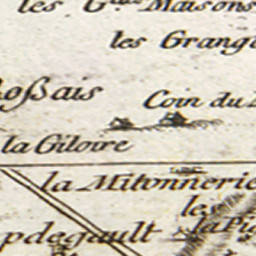 les G.des Maisons
les Grang
oßais
Coin du
la Giloire
la Mitonnerie
le
la Pi
pdegault